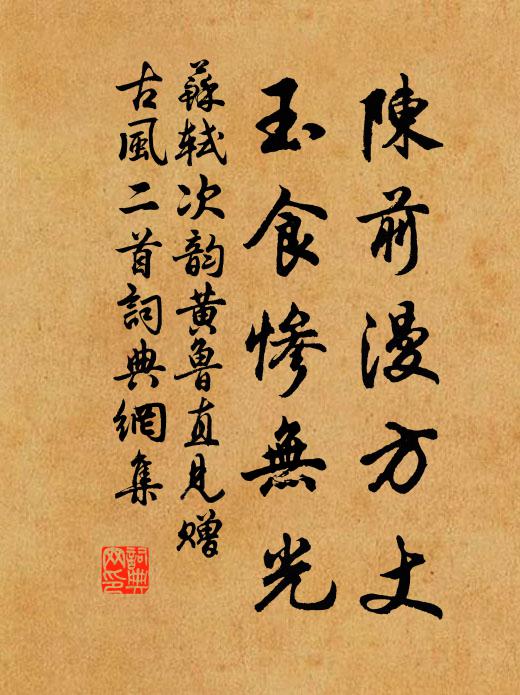 陳前漫方丈
玉食慘無光
蘇軾次韵黄魯直見贈
古風二首詞典網集
詞典網印